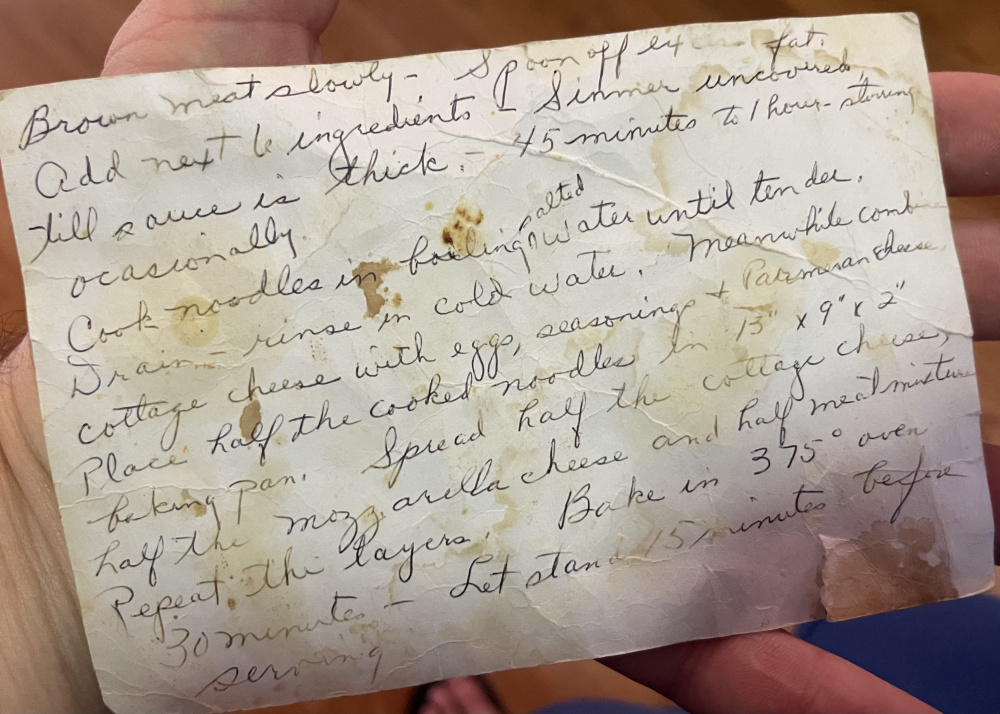 Brown meat slowly - Spoon off excess fat.
Add next 6 ingredients - Simmer uncovered,
till sauce is thick - 45 minutes to 1 hour - stirring
ocasionally.
Cook noodles in boiling salted water until tender.
Drain - rinse in cold water. Meanwhile combine
cottage cheese with eggs, seasonings + Parmesan cheese.
Place half the cooked noodles in 13" x 9" x 2"
baking pan. Spread half the cottage cheese,
half the mozzarella cheese and half meat mixture
Repeat the layers. Bake in 375° oven
30 minutes - Let stand 15 minutes before
serving